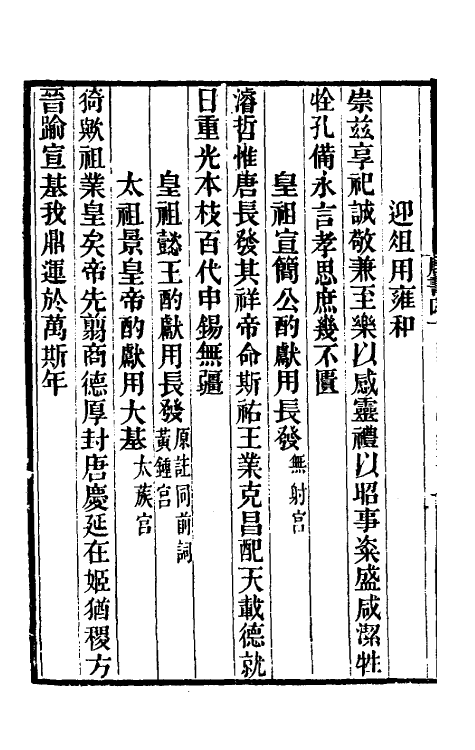 迎俎用雍和
崇兹享祀誠敬兼至樂以感靈禮以昭事粢盛咸潔牲
牷孔備永言孝思庶幾不匱
皇祖宣簡公酌獻用長發無射宫
濬哲惟唐長發其祥帝命斯祐王業克昌配天載德就
日重光本枝百代申錫無疆
皇祖懿王酌獻用長發原註同前詞黃鍾宫
太祖景皇帝酌獻用大基太蔟宫
猗歟祖業皇矣帝先翦商德厚封唐慶延在姬猶稷方
晉踰宣基我鼎運於萬斯年